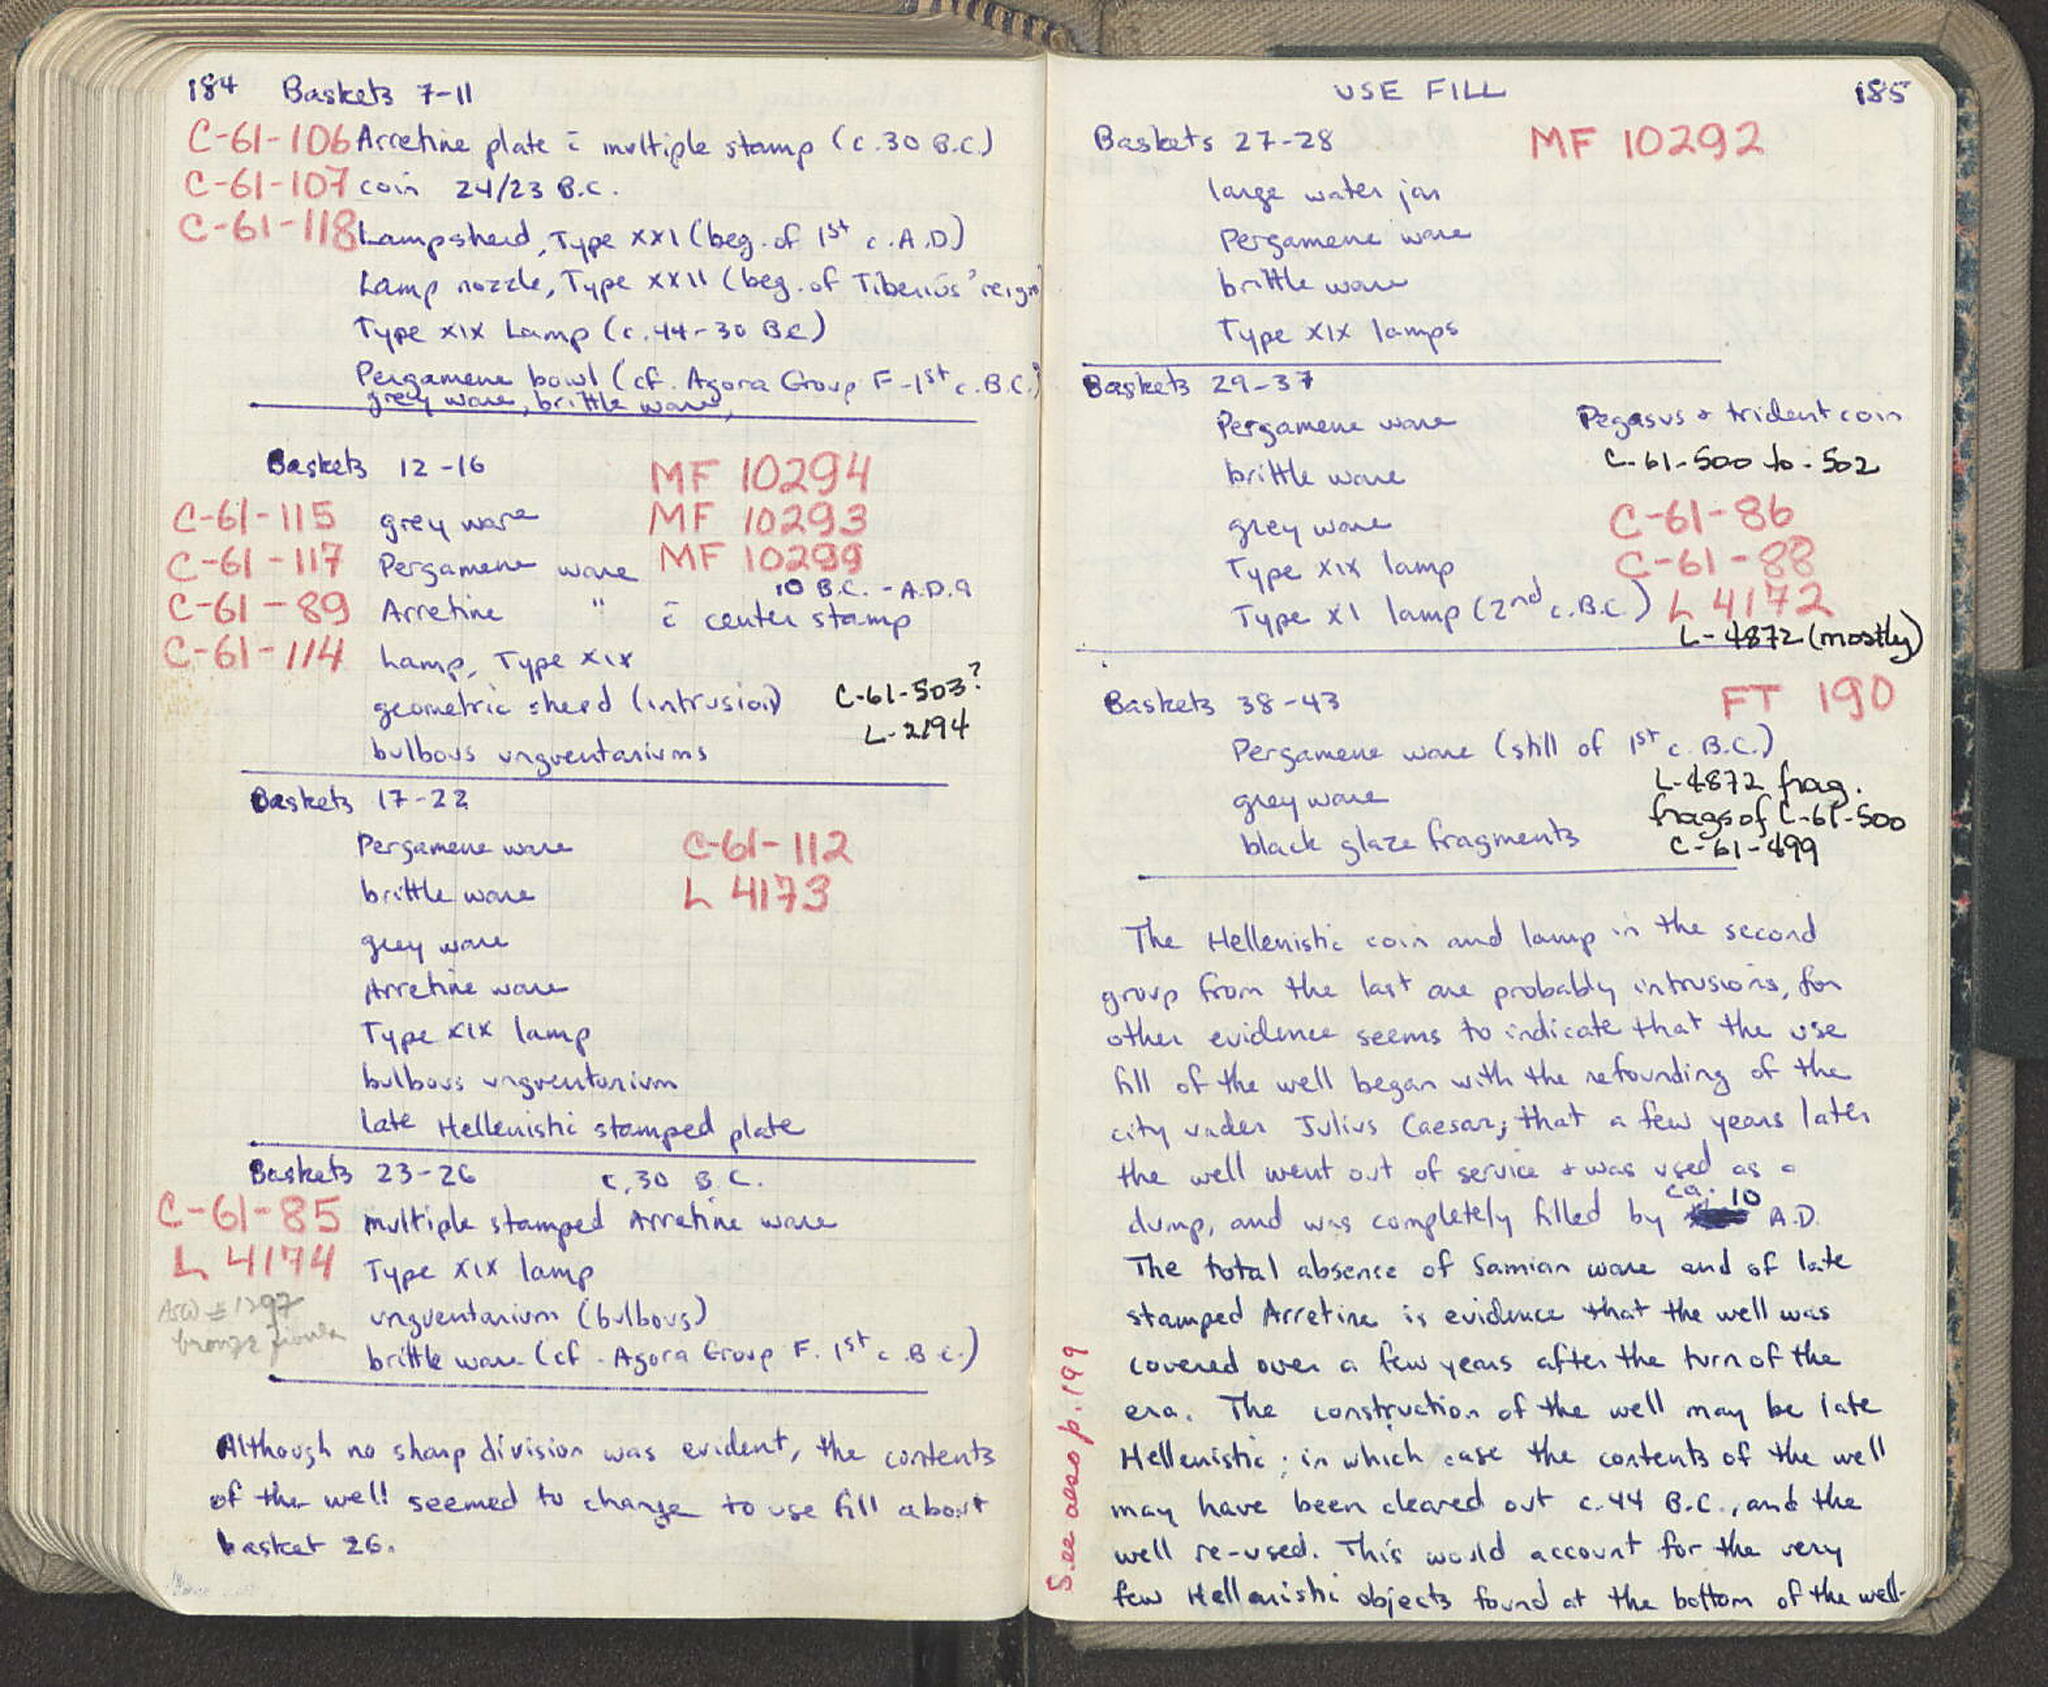 184 Baskets 7-11
C-61-106 Arretine plate c̄ multiple stamp (c. 30 B.C.)
C-61-107 coin 24/23 B.C.
C-61-118 Lampsherd, Type XXI (beg. of 1st c. A.D.)
Lamp nozzle, Type XXII (beg. of Tiberius' reign)
Type XIX Lamp (c. 44-30 BC)
Pergamene bowl (cf. Agora Group F-1st c. B.C.)
grey ware, brittle ware,
Baskets 12-16 MF 10294
C-61-115 grey ware MF 10293
C-61-117 Pergamene ware MF 10299
10 B.C. - A.D. 9
C-61-89 Arretine " c̄ center stamp
C-61-114 Lamp, Type XIX
geometric sherd (intrusion) C-61-503?
L-2194
bulbous unguentariums
Baskets 17-22
Pergamene ware C-61-112
brittle ware L 4173
grey ware
Arretine ware
Type XIX lamp
bulbous unguentarium
late Hellenistic stamped plate
Baskets 23-26 c. 30 B.C.
C-61-85 multiple stamped Arretine ware
L 4174 Type XIX lamp
unguentarium (bulbous)
bronze
brittle ware (cf. Agora Group F. 1st c. B.C.)
Although no sharp division was evident, the contents
of the well seemed to change to use fill about
basket 26.
USE FILL 185
Baskets 27-28 MF 10292
large water jar
Pergamene ware
brittle ware
Type XIX lamps
Baskets 29-37
Pergamene ware Pegasus & trident coin
brittle ware C-61-500 to -502
grey ware C-61-86
Type XIX lamp C-61-88
Type XI lamp (2nd c. B.C.) L 4172
L-4872 (mostly)
Baskets 38-43 FT 190
Pergamene ware (still of 1st c. B.C.)
grey ware L-4872 frag.
frags of C-61-500
black glaze fragments C-61-499
The Hellenistic coin and lamp in the second
group from the last are probably intrusions, for
other evidence seems to indicate that the use
fill of the well began with the refounding of the
city under Julius Caesar; that a few years later
the well went out of service & was used as a
dump, and was completely filled by ca. 10 A.D.
The total absence of Samian ware and of late
stamped Arretine is evidence that the well was
covered over a few years after the turn of the
era. The construction of the well may be late
Hellenistic; in which case the contents of the well
may have been cleared out c. 44 B.C., and the
well re-used. This would account for the very
few Hellenistic objects found at the bottom of the well-
See also p. 199